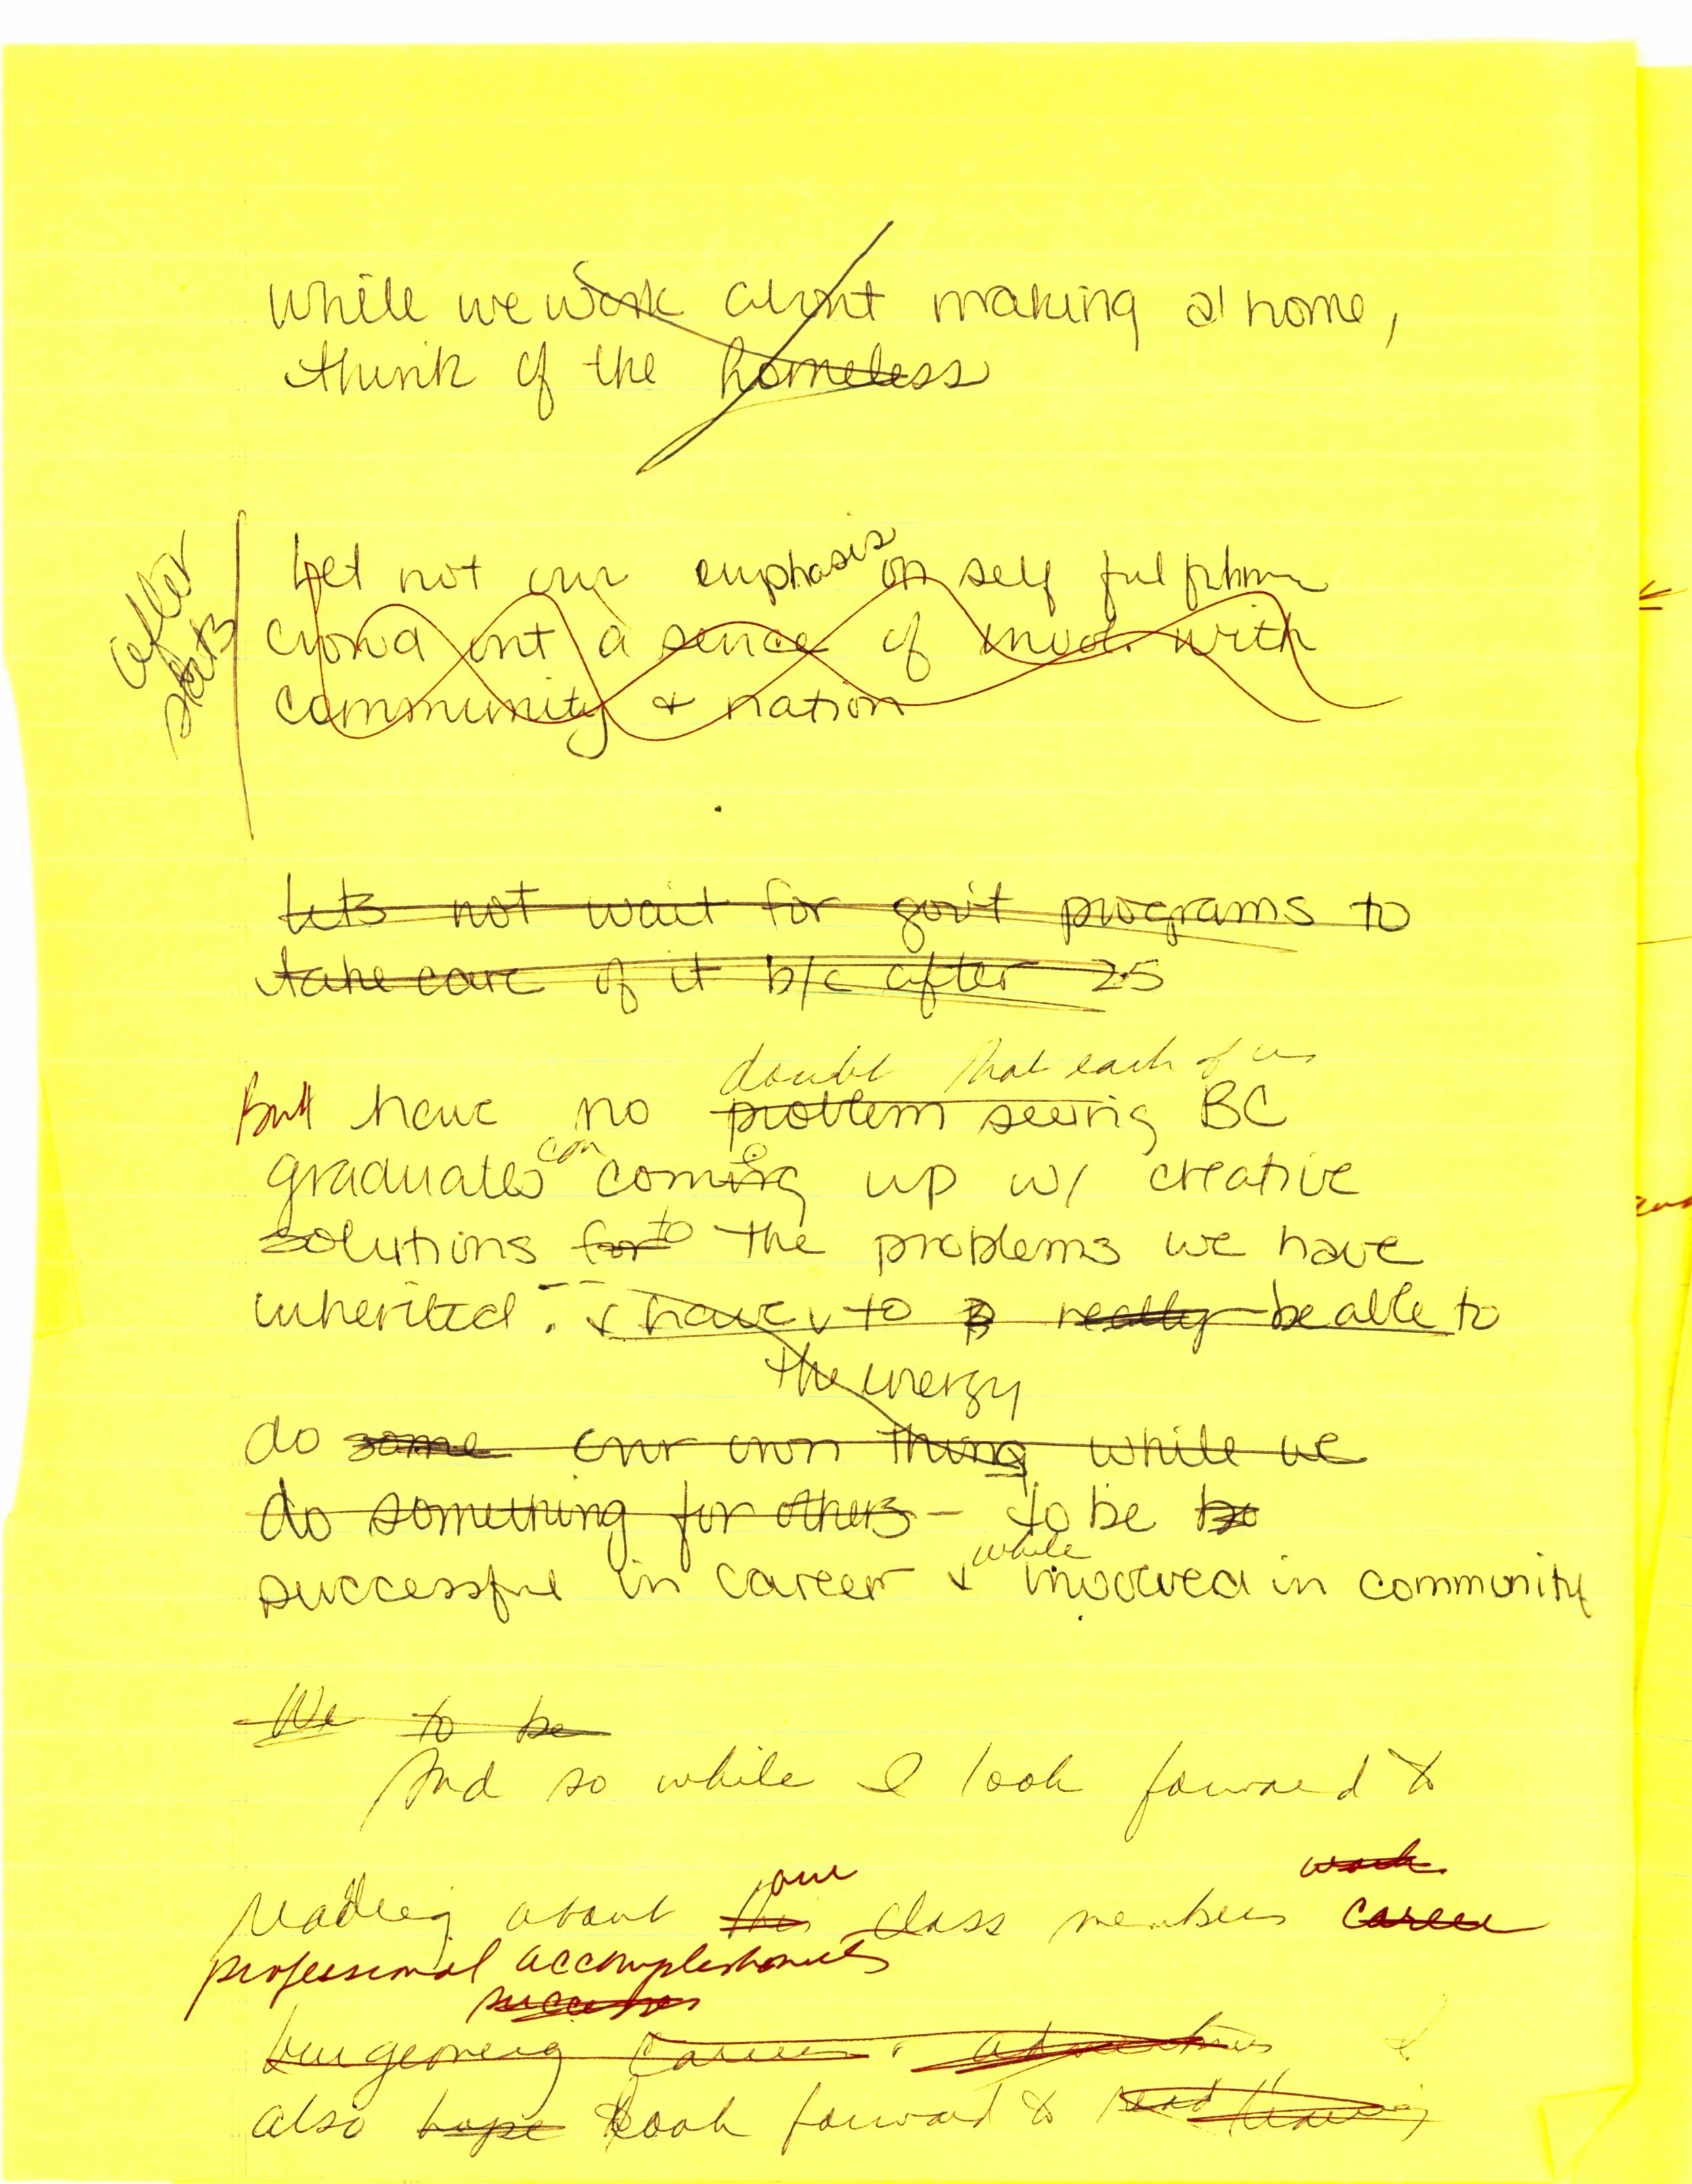 while we work about making a home,
think of the homeless
after
stats
Let not our emphasis on self fulfillmen
crowd out a sence of invol. with
community + nation
Lets not wait for gov't programs to
take care of it b/c after 25
doubt that each of us
But have no problem seeing BC
graduates can coming up w/ creative
solutions for to the problems we have
inherited. + have to really be able to
the energy
do some our own thing while we
do something for others - to be
while
successful in career + involved in community
We to be
And so while I look forward to
our work
reading about this class members career
professional accomplishments
successes
burgeoning careers. adventures I
also hope look forward to read